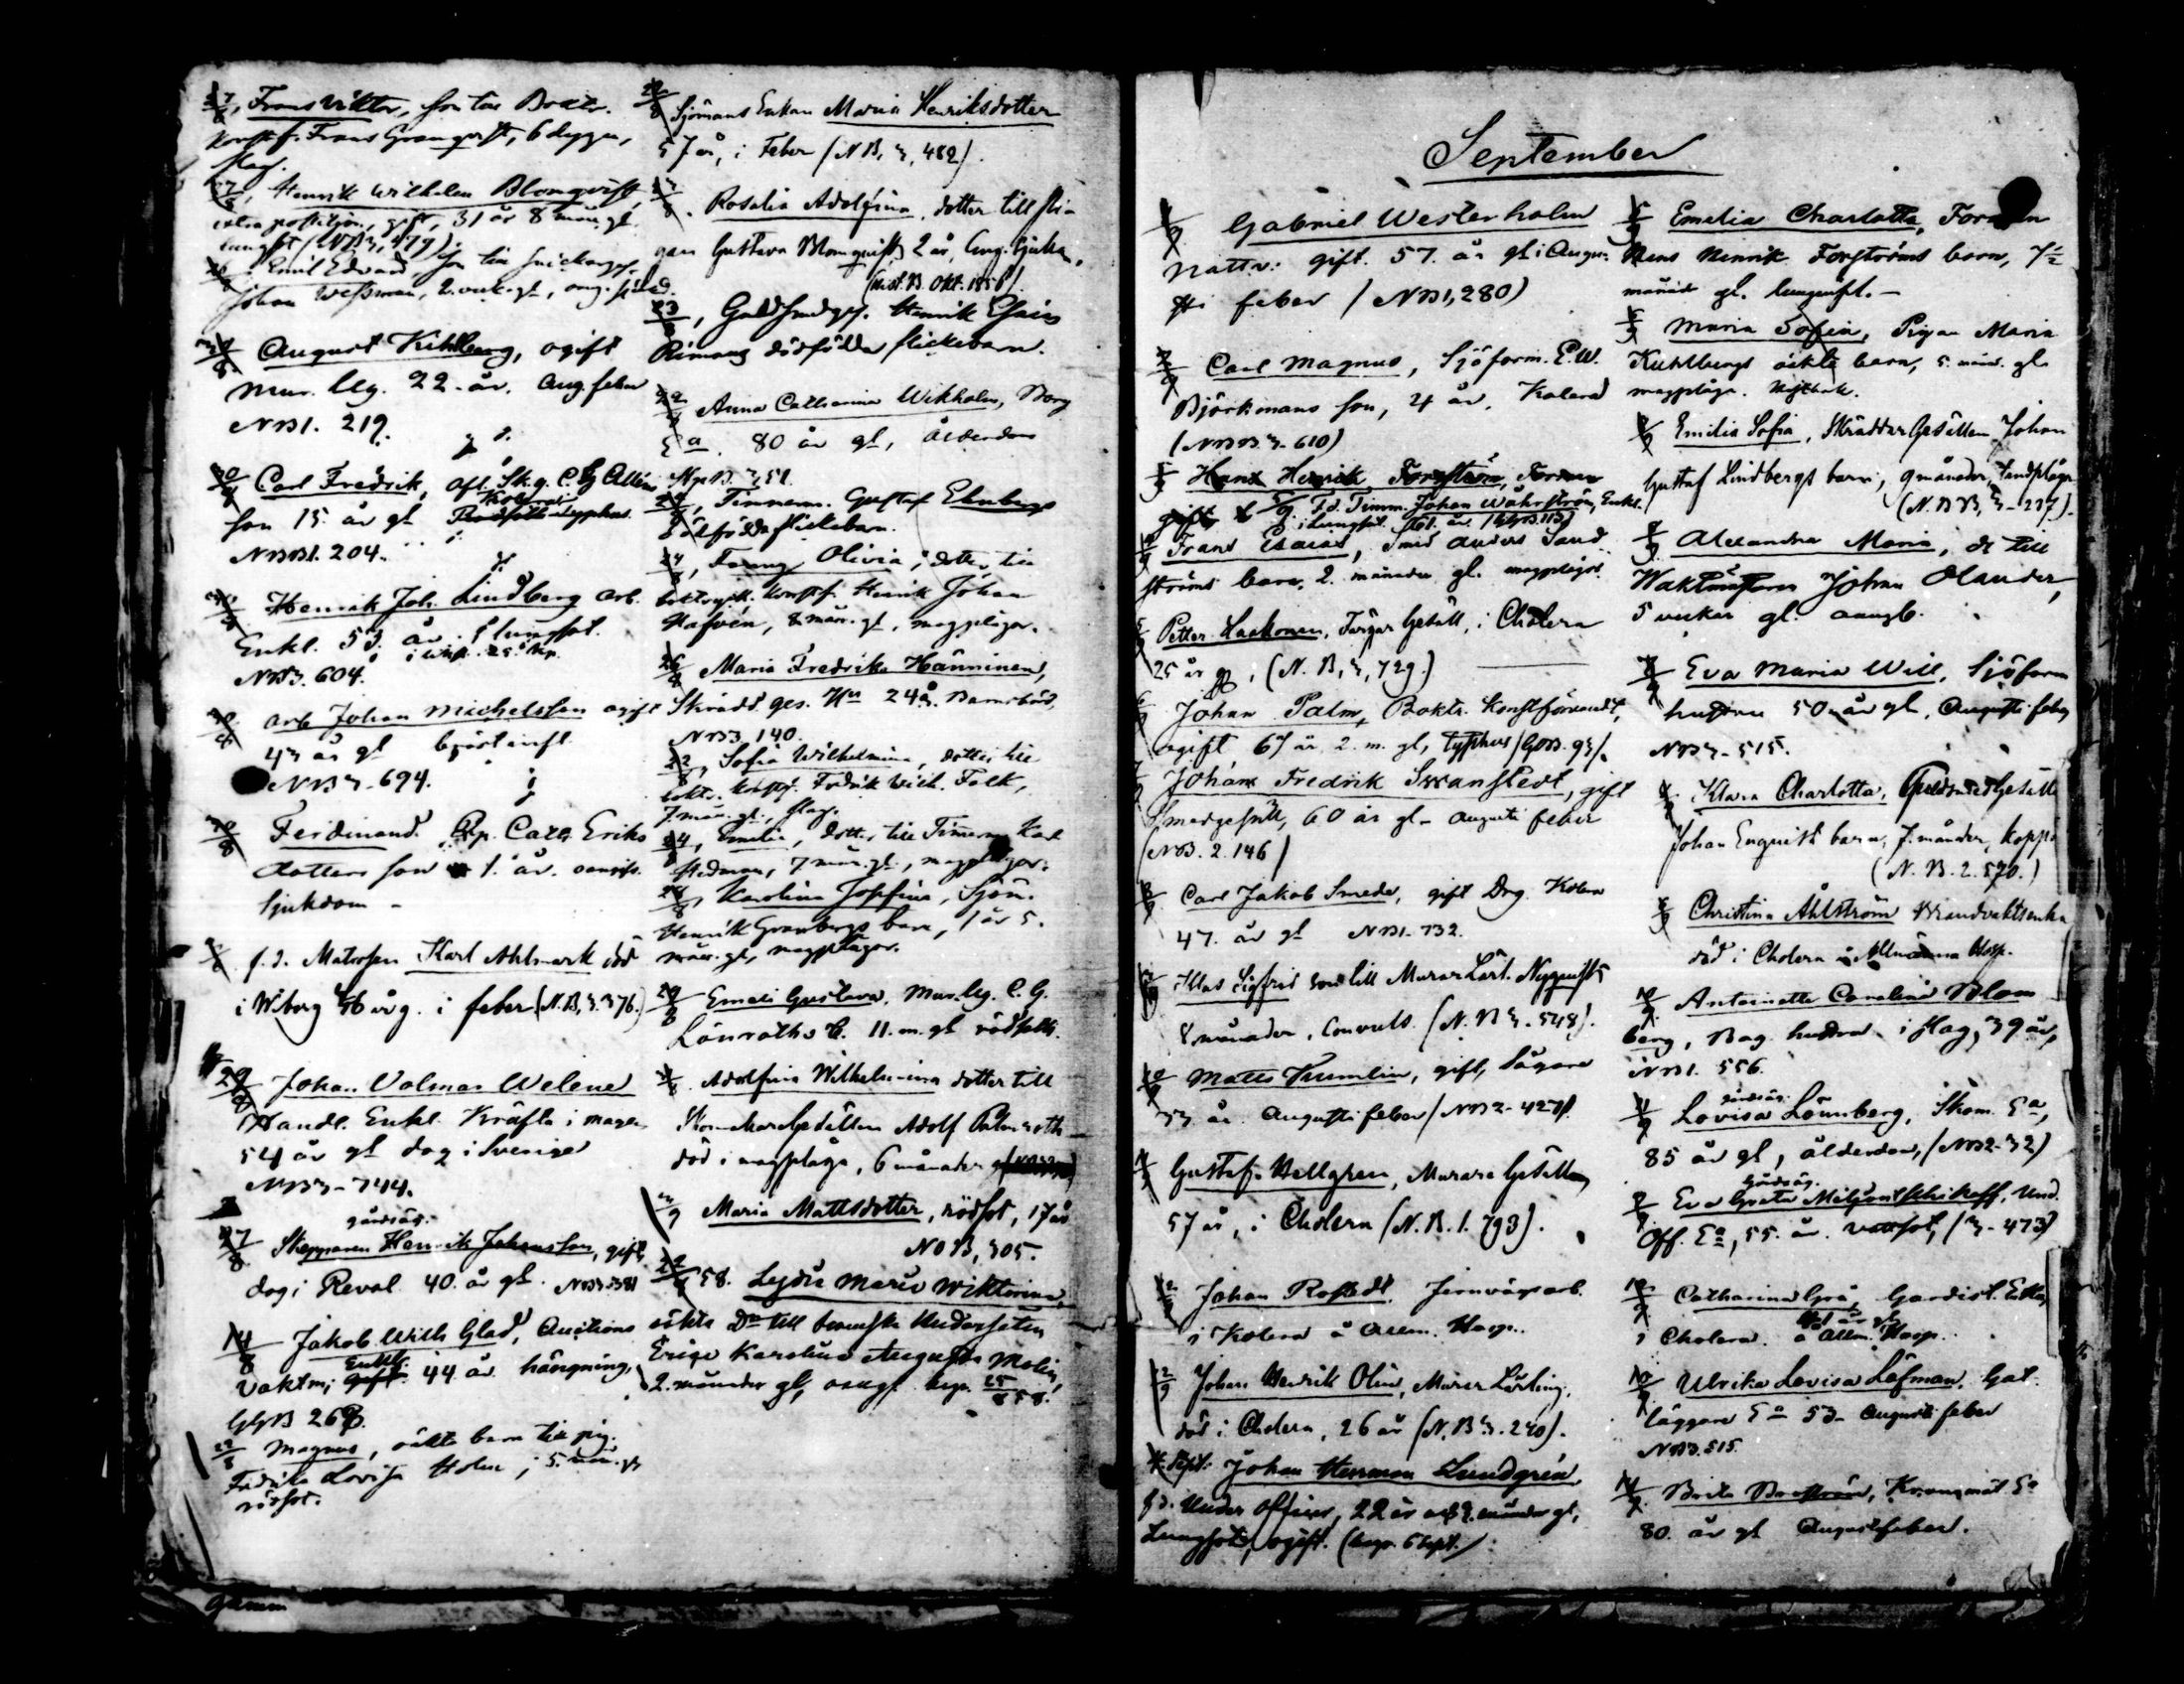 27/8, Frans Viktor, son till Boktr.
konstf. Frans Granqvist, 6 dygn,
slag.
27/8, Henrik Wilhelm Blomqvist,
extra postiljon, gift, 31 år 8 mån. gl.
lungsot (NB3, 479).
26/8 Emil Edvard, son till snickarges.
Johan Wessman, 2 veck. gl.,
29/8 August Kihlberg, ogift
Mur. llg. 22 år. Aug. feber
NB1. 219.
30/8 Carl Fredrik, afl. Sk.g. C. G.
son 15 år gl
NBB1. 204.
Henrik Joh. Lindberg arb.
Enkl. 53 år i lungsot.
NB3. 604.
30/8 arb Johan Michelsson ogift
43 år gl bröst infl.
NB3-694.
30/8 Ferdinand. Pig. Carol. Eriks
dotters son 1. år. oangifv.
sjukdom -
f. d. Matrosen Karl Ahlmark död
i Wiborg 46 år g. i feber (N.B, 3.376.)
29/8 Johan Volmar Welene
Handl. Enkl. Kräfta i magen
54 år gl dog i Sverige
NB3-744.
27/8 gårdsäg.
Skepparen Henrik Johansson, gift
dog i Reval 40. år gl. NB3.381
14/8 Jakob Wilh Glad, Auctions
Vaktm; Enkl. gift. 44 år hängning,
GGB 268.
22/8 Magnus, oäkta barn till pig.
Fredrika Lovisa Holm, 5. mån. gl
rödsot.
22/8 Sjömans Enkan Maria Henriksdotter
57 år, i Feber (NB, 3, 482).
Rosalia Adolfina, dotter till pi-
gan Gustava Blomqvist, 2 år, Ang. sjukd.
(Attest. B. Okt. 1858).
23/8, Guldsmedges. Henrik Esaias
Rimans dödfödda flickebarn.
22/8 Anna Catharina Wikholm, Borg
Ea. 80 år gl, ålderdom
NB. 3, 51.
Timmerm. Gustaf Ekenbergs
dödfödda flickebarn.
24/8, Fanny Olivia, dotter till
boktryck. konstf. Henrik Johan
Hafvén, 8 mån. gl, magplågor.
26/8 Maria Fredrika Hänninen,
Skrädd. ges. Hu 24 år. Barnsbörd,
NB3 140.
22/8, Sofia Wilhelmina, dotter till
boktr. konstf. Fredrik Wilh. Falk,
7 mån. gl., slag.
24/8, Emilia, dotter till Timerm. Karl
Hedman, 7 mån. gl., magplågor.
24/8, Karolina Josefina, Sjöm.
Henrik Granbergs barn, 1 år 5.
mån. gl, magplågor.
29/8 Emeli Gustava, Mur. lg. C. G.
Lönroths b. 11. m. gl rödsoth.
Adolfina Wilhelmina dotter till
Skomakar Gesällen Adolf Palmroth
död i magplåga, 6 månader gl
Maria Mattsdotter, rödsot, 17 år
NB, 305.
22/8 58. Lydia Maria Wiktorina,
oäkta Dr till
Erica Karolina Augusta Molin,
2. månader gl, oangf. begr. 25/8 58.
September
1/9 Gabriel Westerholm
Nattv: gift. 57. år gl i Augu-
sti feber (NB1, 280)
2/9 Carl Magnus, Sjöform. E.W.
Björkmans son, 4 år, Kolera
(NBB3-610)
Hans Henrik Forsström, Forman
gift 5/9. Fd. Timm. Johan Wåhrström, Enkl.
i lungsot.
Frans Esaias, Smed Anders Sand
ströms barn, 2. månader gl. magplågor.
5/9 Petter Laakonen, Färgar Gesäll, i Cholera
25 år g, (N. B, 3, 729.)
6/9 Johan Palm, Boktr. konstförvandt,
ogift 67 år 2. m. gl, typhus (GB. 93).
7/9 Johan Fredrik Swanstedt, gift
Smedgesäll, 60 år gl - Augusti feber
(NB. 2. 146)
8/9 Carl Jakob Smeds, gift Drg. Kolera
47. år gl NB1-732.
Klas Sigfrid son till Murar Lärl. Nyqvist
8 månader, Convuls. (N. B 3. 548).
10/9 Matts Kumlin, gift, Sågare
33 år. Augusti feber (NB2-427).
Gustaf Hellgren, Murare Gesällen
57 år, i Cholera (N. B. 1. 793).
12/9 Johan Rostedt Jernvägsarb.
i Kolera å Allm. Hosp.
12/9 Johan Henrik Olin, Murar Lärling,
död i Cholera, 26 år (N. B 3. 240).
4. Sept. Johan Herrman Lundgrén
f.d. Under officer, 22 år och 9. månader gl,
Lungsot, ogift. (begr. 6 Sept.)
5/9 Emelia Charlotta, Forman
Hans Henrik Forsströms barn, 7½
månad gl. lungsot. -
5/9 Maria Sofia, Pigan Maria
Kuhlbergs oäkta barn, 5. mån. gl
magplåga.
6/9 Emilia Sofia, Skräddar Gesällen Johan
Gustaf Lindbergs barn, 9 månader, tandplåga
(N. B B, 3-237).
8/9 Alexandra Maria, dr till
Waktmästaren Johan Olander,
5 veckor gl. oangb.
Eva Maria Will, Sjöform
hustru 50 år gl, Augusti feber
NB3-515.
Klara Charlotta, Guldsmed Gesällen
Johan Enqvists barn, 7 månader, koppor
(N. B. 2. 570.)
8/9 Christina Åhlström Brandvaktsenka
död i Cholera å Allmänna Hosp.
10/9 Antoinette Carolina Blom
berg, Bag. hustru i slag, 39 år,
NB1. 556.
11/9 gårdsäg.
Lovisa Lönnberg, Skom. Ea,
85 år gl, ålderdom, (NB2-32)
gårdsäg.
Eva Greta Miljantschikoff, Und.
Off. Ea, 55. år. vattsot, (3-473)
12/9 Catharina Grå, Gardist. Enka,
i Cholera å Allm. Hosp.
10/9 Ulrika Lovisa Löfman, Gat.
läggare Ea 53 - Augusti feber
NB3.515.
14/9 Brita Broström, Kronomåt. Ea
80. år gl Augustifeber.